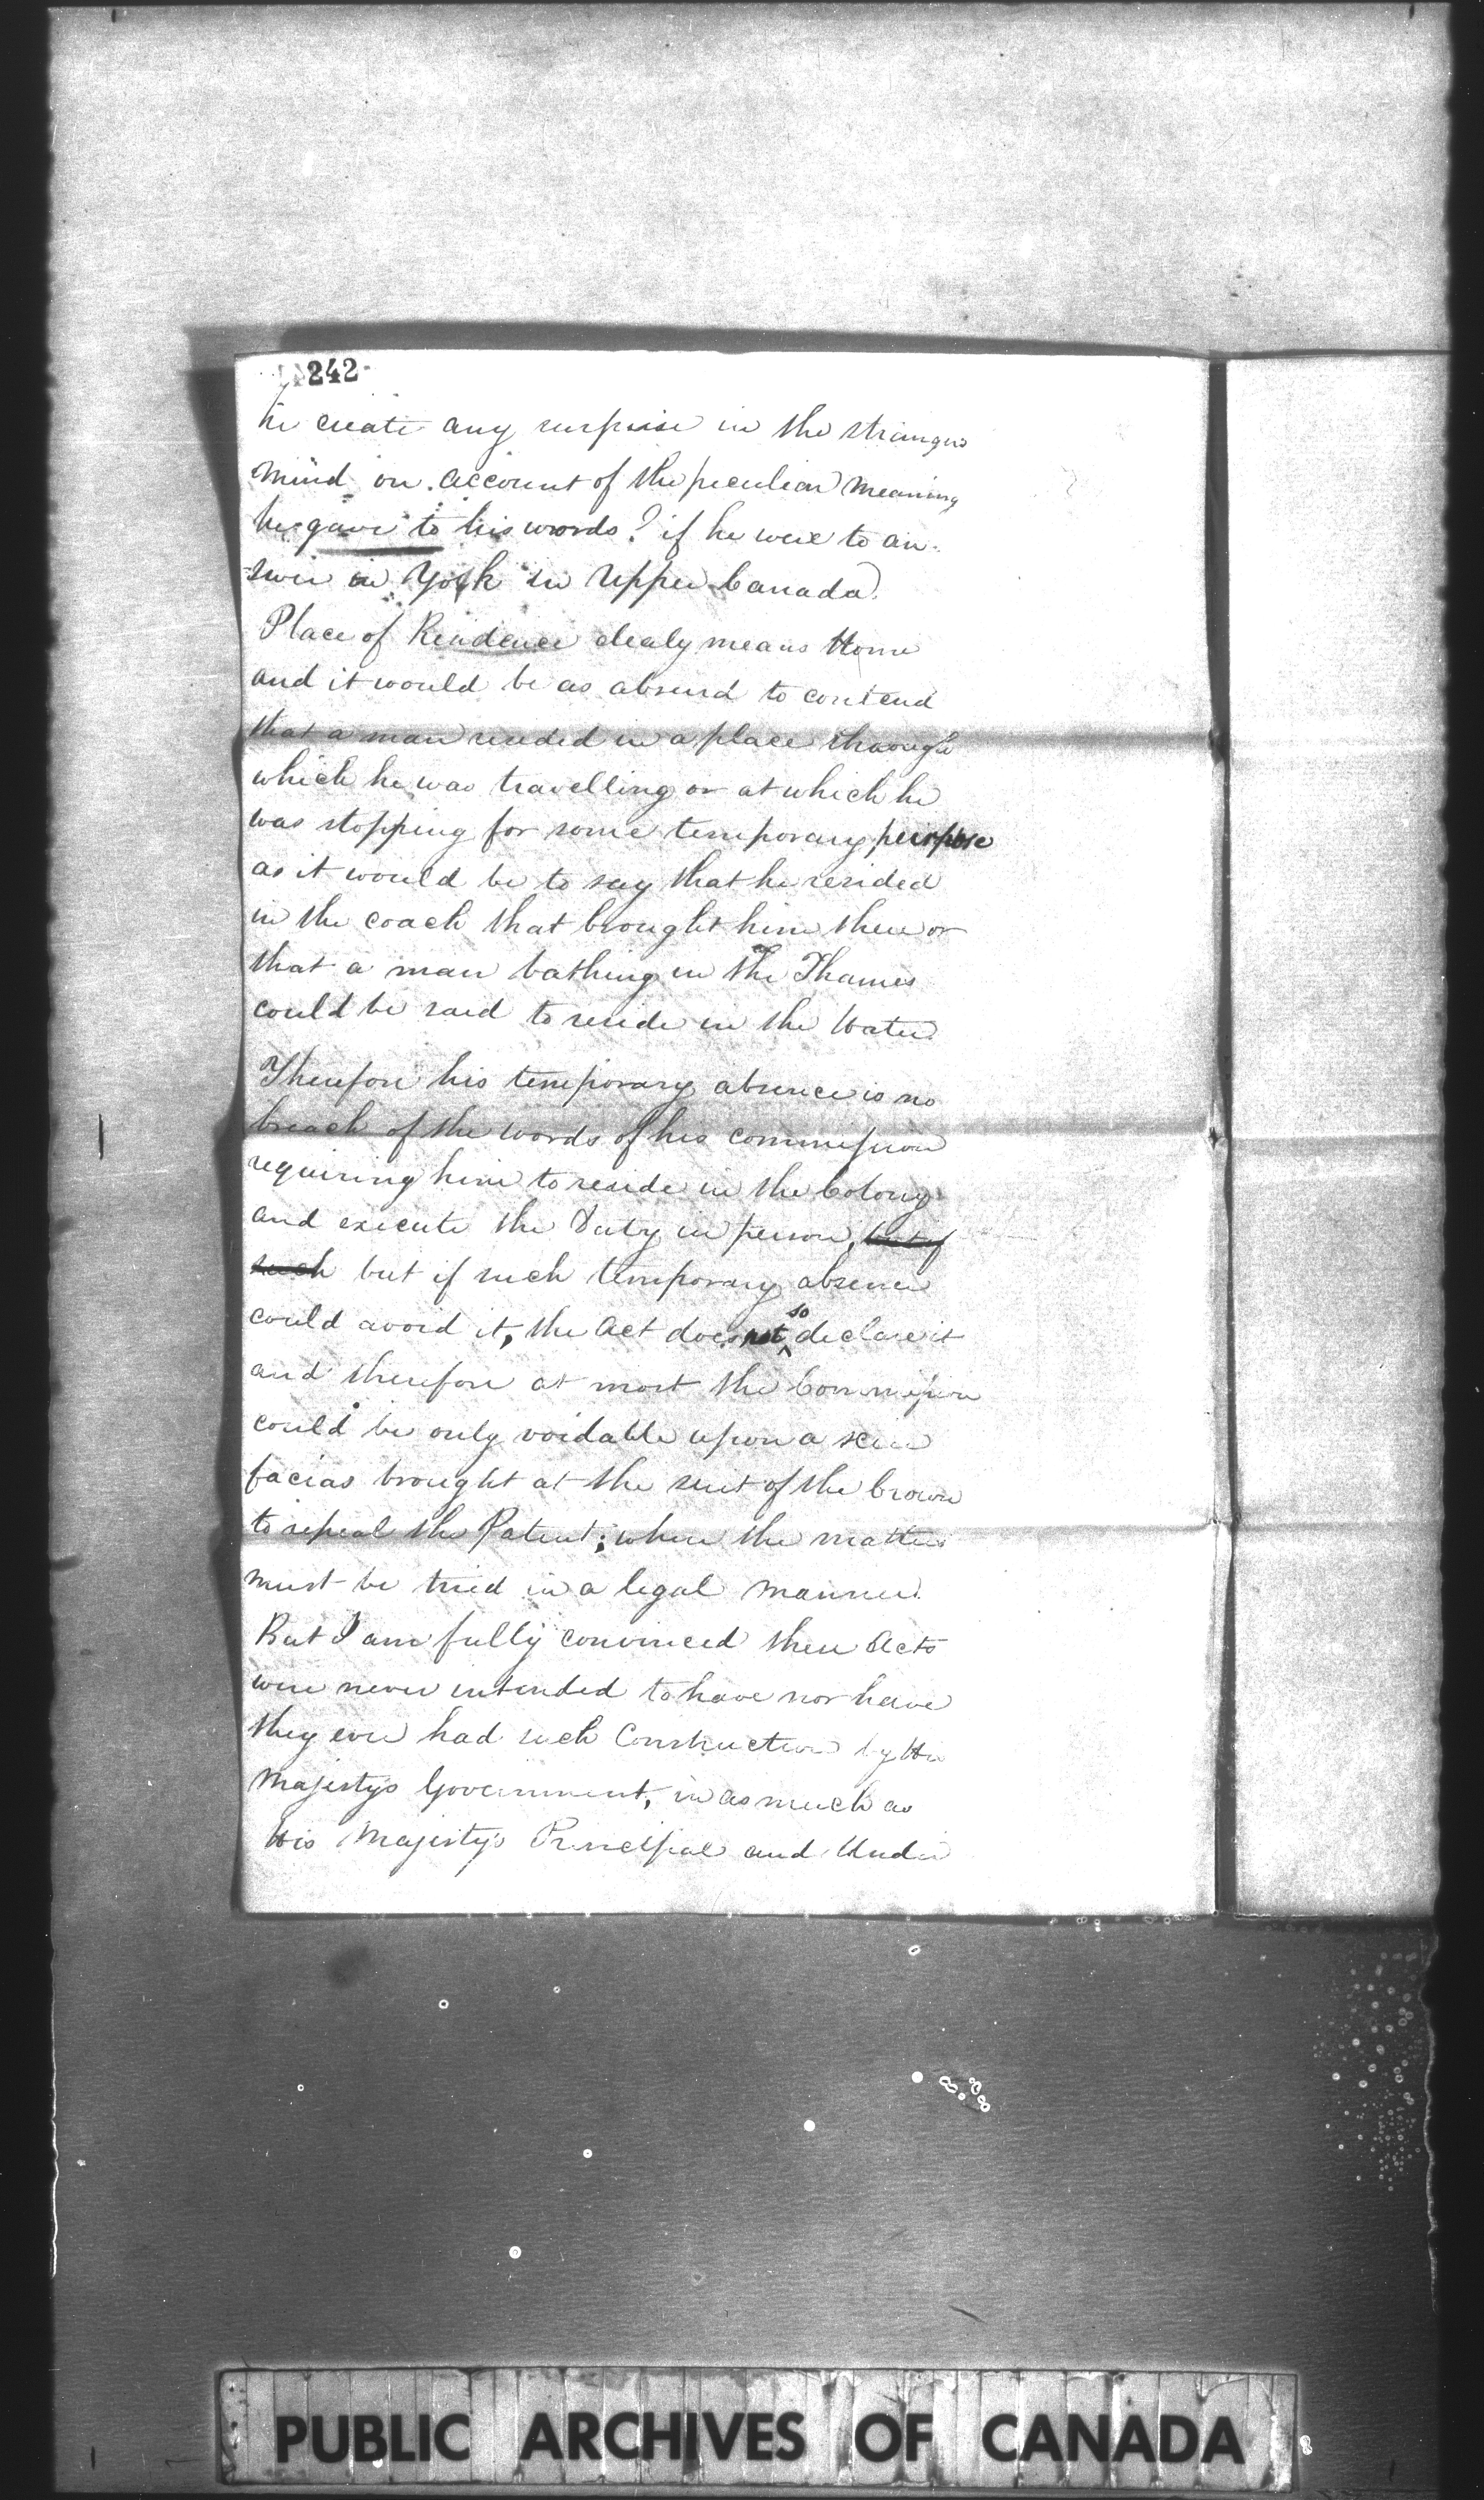 242
he create any surprise in the strangers
mind on account of the peculiar meaning
he gave to his words? if he were to an-
swer in York in Upper Canada.
Place of Residence clealy means Home
and it would be as absurd to contend
that a man resided in a place through
which he was travelling or at which he
was stopping for some temporary purpose
as it would be to say that he resided
in the coach that brought him there or
that a man bathing in the Thames
could be said to reside in the Water.
Therefore his temporary absence is no
breach of the words of his commission
requiring him to reside in the Colony
and execute the Duty in person, but if
such but if such temporary absence
could avoid it, the Act does not so declare it
and therefore at most the Commission
could be only voidable upon a scire
facias brought at the suit of the Crown
to repeal the Patent; where the matter
must be tried in a legal manner.
But I am fully convinced these Acts
were never intended to have nor have
they ever had such Construction by His
Majesty's Government, in as much as
His Majesty's Principal and Under
PUBLIC ARCHIVES OF CANADA